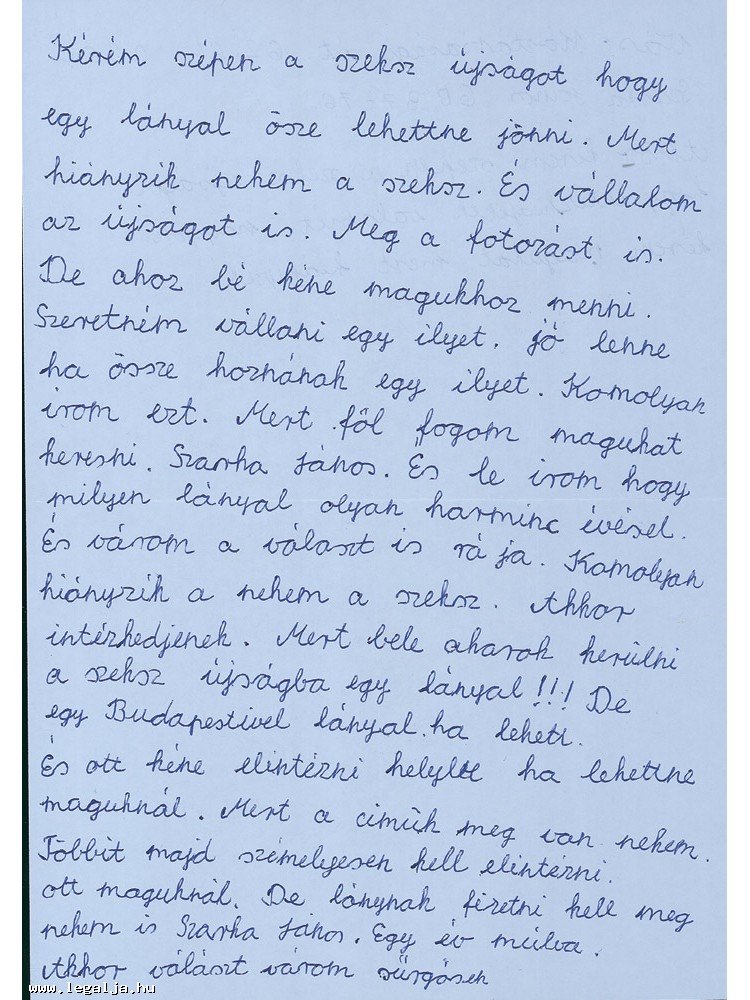 Kérém szépen a szeksz újságot hogy
egy lányal össe lehettne jönni. Mert
hiányzik nekem a szeksz. És vállalom
az újságot is. Meg a fotozást is.
De ahoz bé kéne magukhoz menni.
Szeretném vállani egy ilyet. jó lenne
ha össze hoznának egy ilyet. Komolyan
irom ezt. Mert föl fogom magukat
keresni. Szarka János. És le irom hogy
milyen lányal olyan harminc évésel.
És várom a választ is rá ja. Komolyan
hiányzik a nekem a szeksz. Akkor
intézkedjenek. Mert bele akarok kerülni
a szeksz újságba egy lányal!!! De
egy Budapestivel lányal. ha lehett.
És ott kéne elintézni helybe ha lehettne
maguknál. Mert a cimük meg van nekem.
Többit majd személyesen kell elintézni.
ott maguknál. De lánynak fizetni kell meg
nekem is Szarka János. Egy év múlva.
Akkor választ várom sürgösen
www.legalja.hu